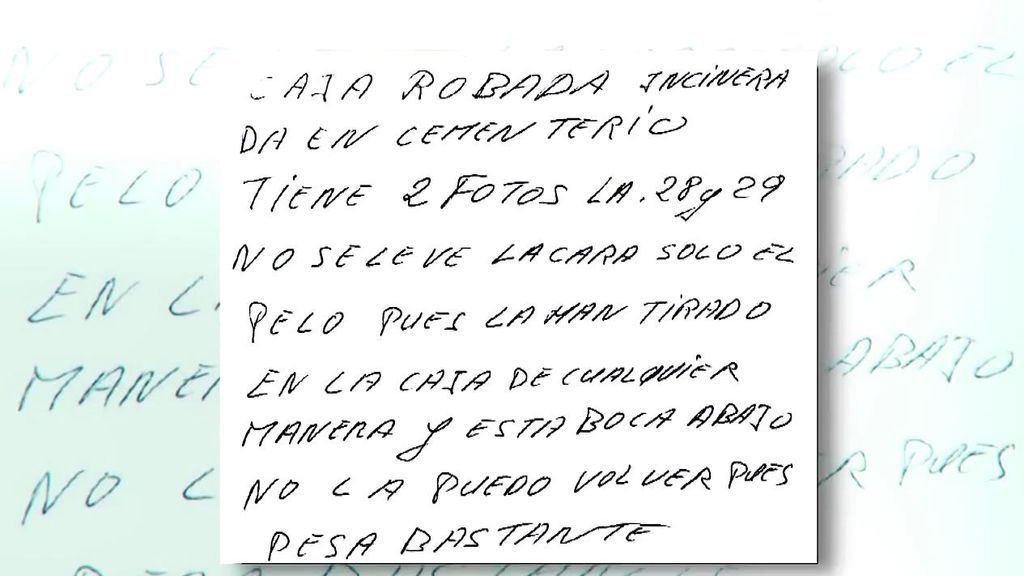 CAJA ROBADA INCINERA
DA EN CEMENTERIO
TIENE 2 FOTOS LA. 28 y 29
NO SE LE VE LA CARA SOLO EL
PELO PUES LA HAN TIRADO
EN LA CAJA DE CUALQUIER
MANERA Y ESTA BOCA ABAJO
NO LA PUEDO VOLVER PUES
PESA BASTANTE